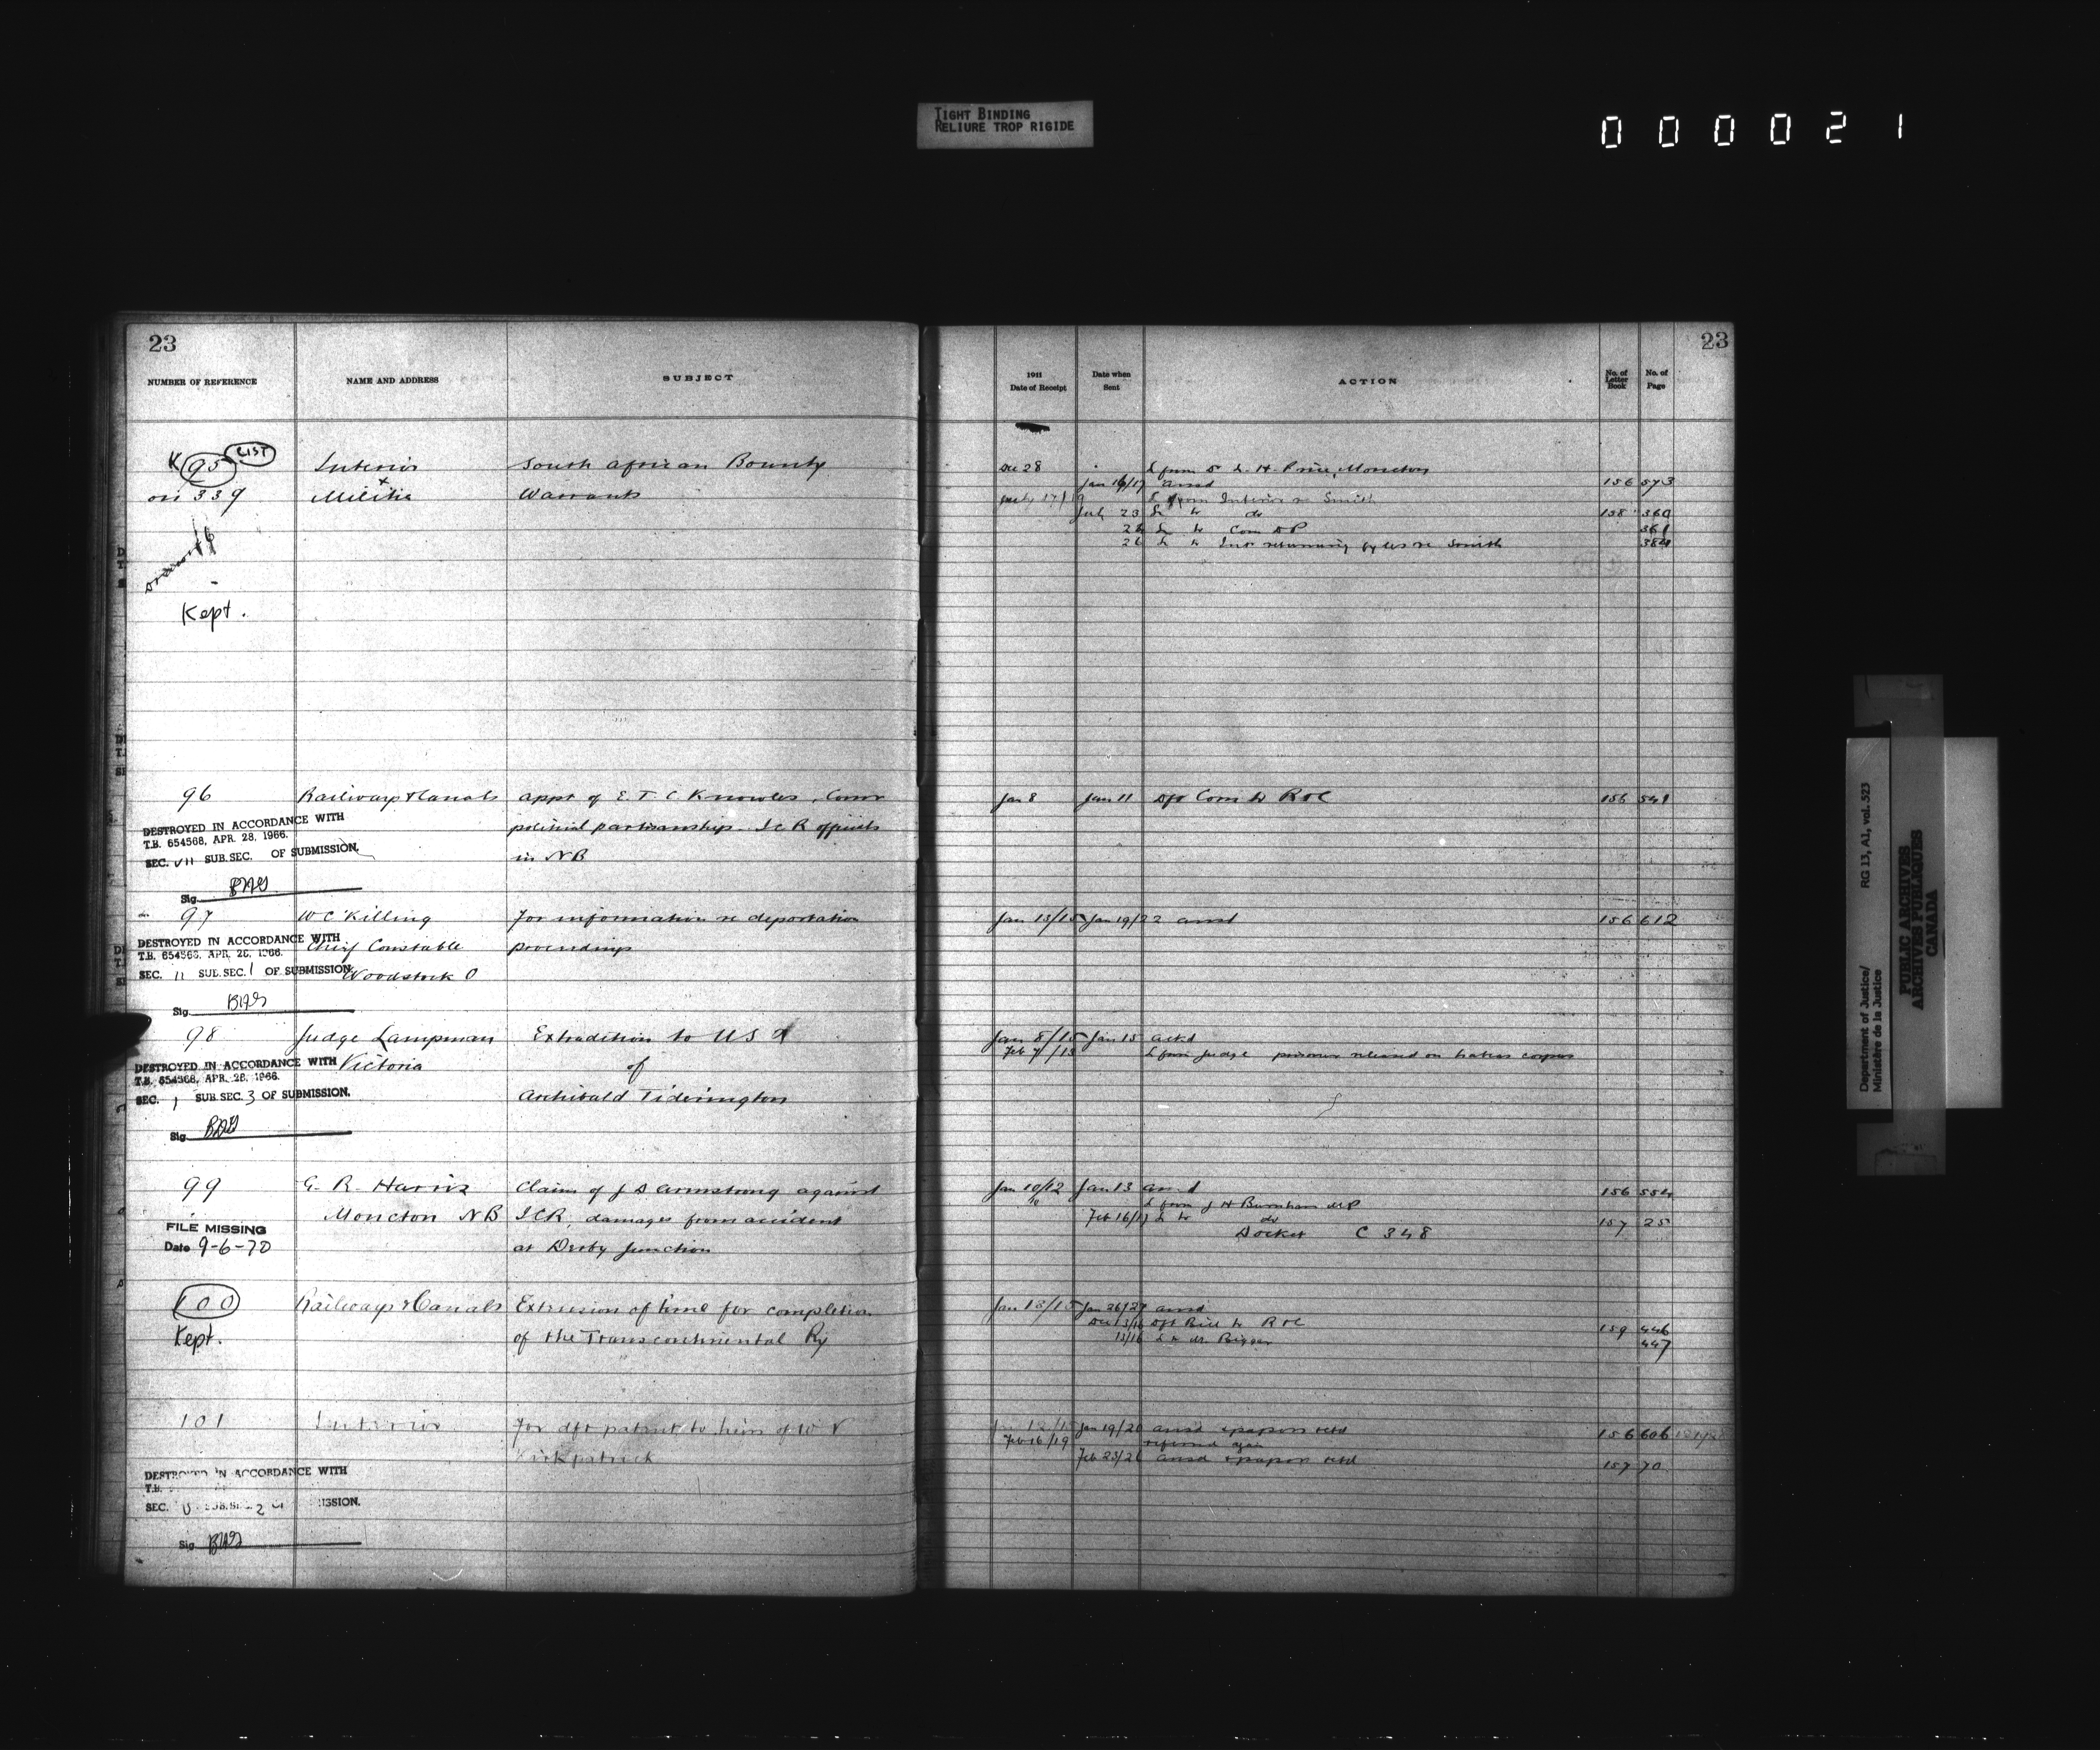 TIGHT BINDING
RELIURE TROP RIGIDE
000021
23
NUMBER OF REFERENCE NAME AND ADDRESS SUBJECT
K 95 LIST Interior South African Bounty
on 339 Militia Warrants
Kept.
96 Railways & Canals appt of E. T. C. Knowles, Comr
political partisanship I C R officials
in N B
DESTROYED IN ACCORDANCE WITH
T.B. 654568, APR. 28, 1966.
SEC. VII SUB. SEC. OF SUBMISSION.
Sig.
97 W C Killing for information re deportation
Chief Constable proceedings
Woodstock O
DESTROYED IN ACCORDANCE WITH
T.B. 654568, APR. 28, 1966.
SEC. 11 SUB. SEC. 1 OF SUBMISSION.
Sig.
98 Judge Lampman Extradition to U S
Victoria of
Archibald Tiderington
DESTROYED IN ACCORDANCE WITH
T.B. 654568, APR. 28, 1966.
SEC. 1 SUB. SEC. 3 OF SUBMISSION.
Sig.
99 G. R. Harris Claim of J S Armstrong against
Moncton N B I C R, damages from accident
at Derby Junction
FILE MISSING
Date 9-6-70
100 Railways & Canals Extension of time for completion
Kept. of the Transcontinental Ry
101 Interior for dft patent to heirs of W
Kirkpatrick
DESTROYED IN ACCORDANCE WITH
T.B.
SEC. SUB. SEC. 2 OF SUBMISSION.
Sig.
23
1911
Date of Receipt Date when Sent ACTION No. of Letter Book No. of Page
Dec 28 L from H. Price, Moncton
Jan 16/17 ansd 156 573
L from Interior re Smith
July 23 L to do 158 360
L to Com D P 361
26 L to Int returning re Smith 384
Jan 8 Jan 11 dft Com to R & C 156 541
Jan 13/15 Jan 19/22 ansd 156 612
Jan 8/15 Jan 15 ackd
Feb 7/13 L from Judge prisoner released on habeas corpus
Jan 10/12 Jan 13 ansd 156 554
L from J H Burnham M P
Feb 16/17 L to do 157 25
Docket C 348
Jan 13/15 Jan 26/27 ansd
Dec 13/16 dft Bill to R & C 159 446
13/16 L to Mr Biggar 447
Jan 19/20 ansd papers retd 156 606
Feb 16/19 referred again
Feb 23/26 ansd papers retd 157 70
Department of Justice/
Ministère de la Justice
RG 13, A1, vol. 523
PUBLIC ARCHIVES
ARCHIVES PUBLIQUES
CANADA